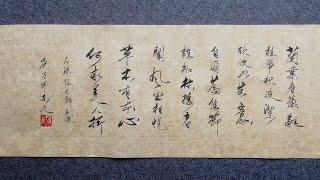 蘭葉春葳蕤
桂華秋皎潔
欣欣此生意
自爾為佳節
誰知林棲者
聞風坐相悅
草木有本心
何求美人折